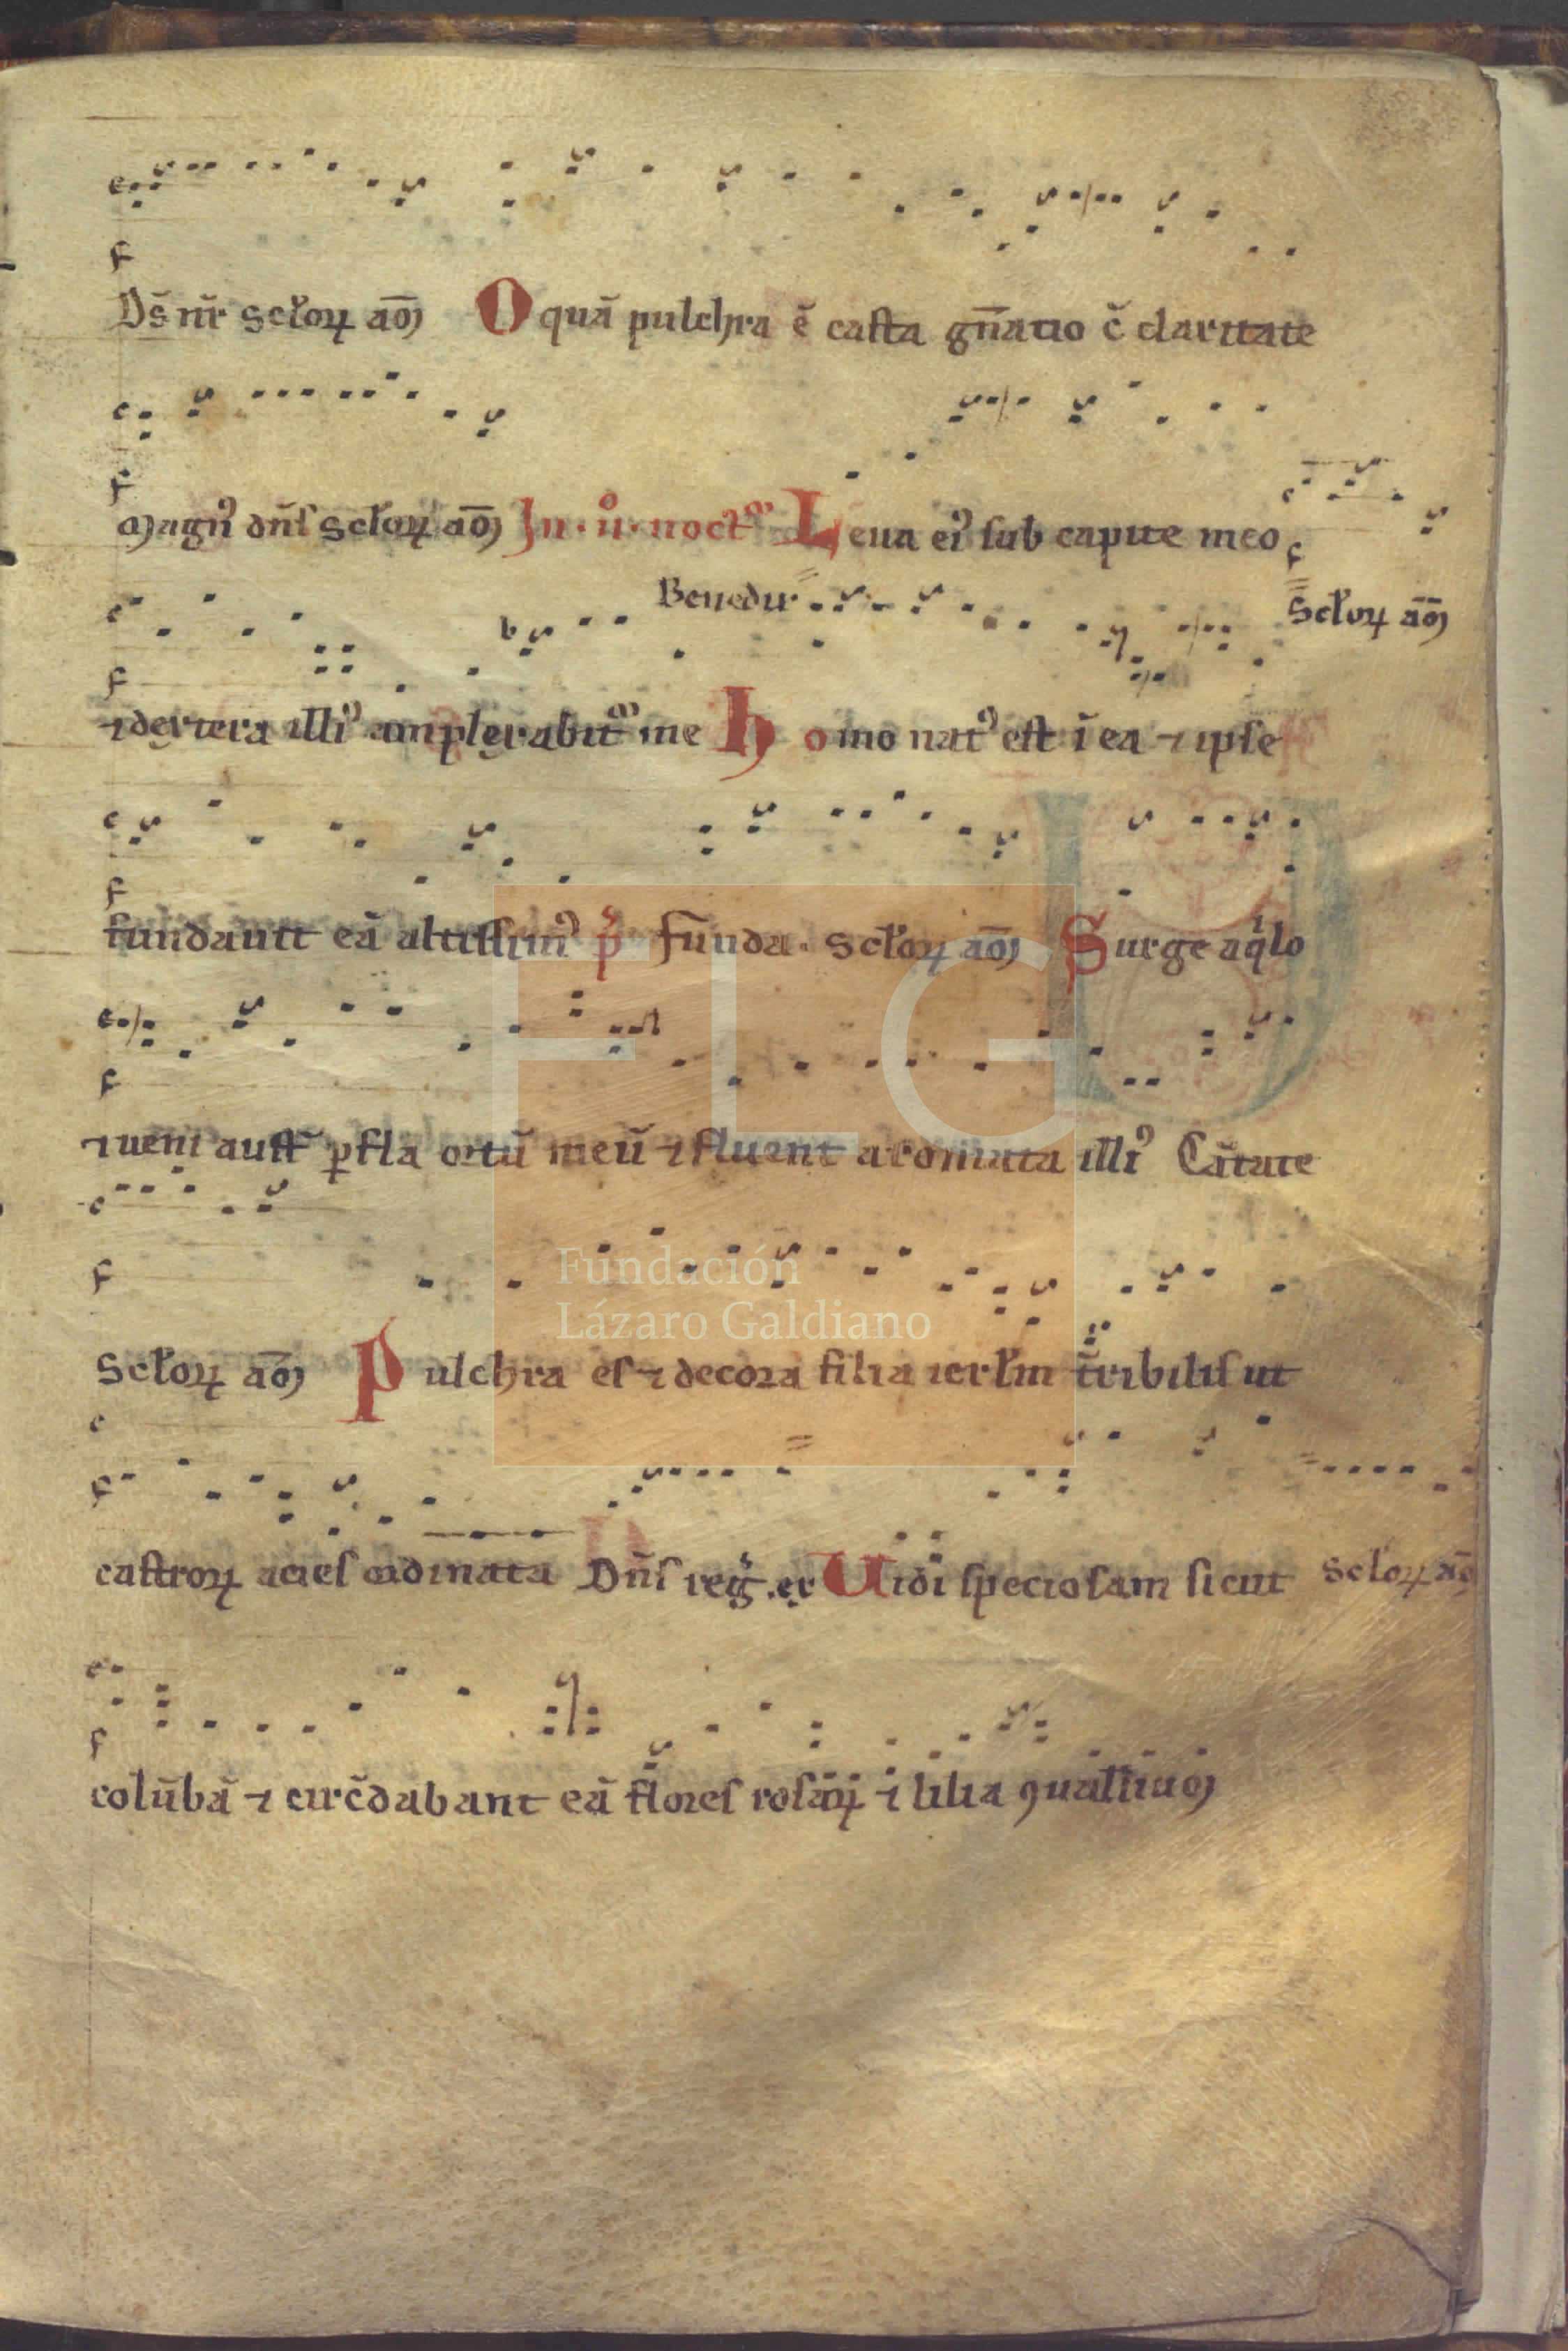 Ds̄ nr̄ scl̄oꝝ am̄ O quā pulchra ē casta gn̄atio c̄ claritate
Magnꝰ dn̄s scl̄oꝝ am̄ In · ii° · noctᵐ Leua eiꝰ sub capite meo
Benedix scl̄oꝝ am̄
⁊ dextera illiꝰ amplexabitᵐ me Homo natꝰ est ī ea ⁊ ipse
fundauit eā altissimꝰ p̄ fūnda · scl̄oꝝ am̄ Surge aqͥlo
⁊ ueni aust̄ ꝑfla ortū meū ⁊ fluent aromata illiꝰ Cātate
scl̄oꝝ am̄ Pulchra es ⁊ decora filia ierl̄m t̄ribilis ut
castroꝝ acies ordinata Dn̄s reḡ . ex Uidi speciosam sicut scl̄oꝝ am̄
colūbā ⁊ circ̄dabant eā flores rosaꝝ ⁊ lilia ꝯualliuꝫ
FLG
Fundación
Lázaro Galdiano